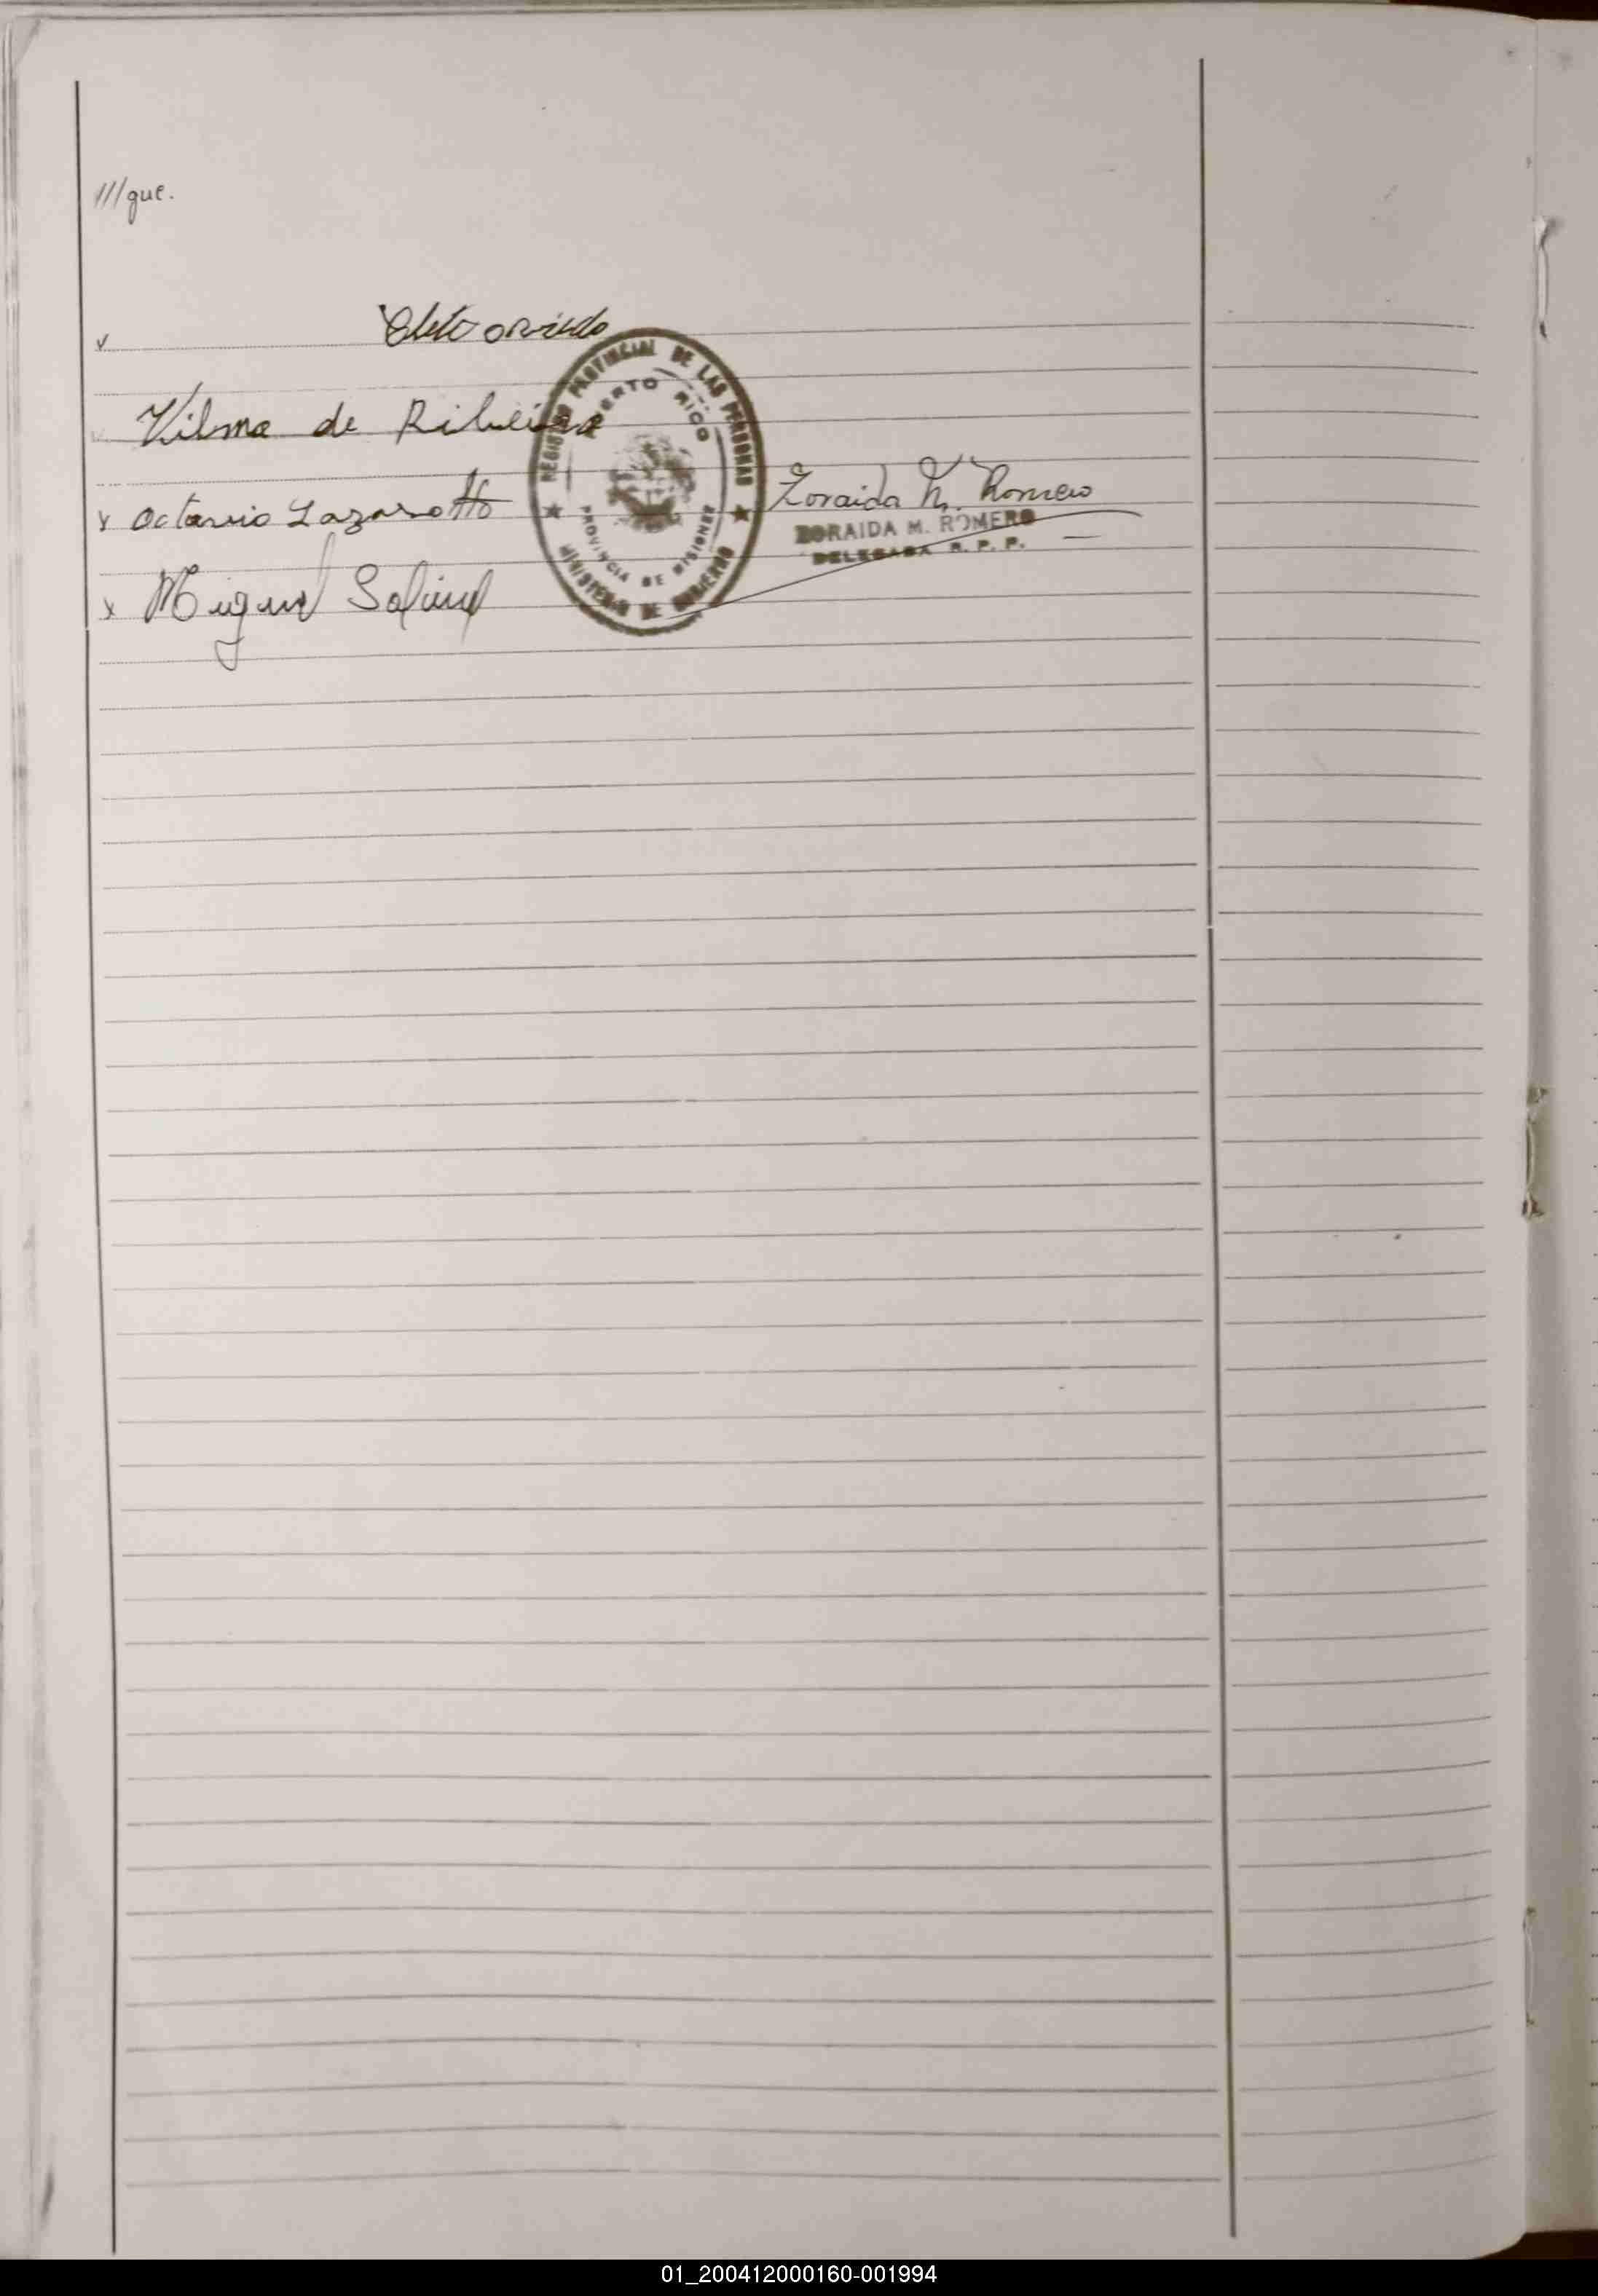 ///gue.
Vilma de Ribeiro
Octavio Lazarotto
Miguel
Zoraida M. Romero
ZORAIDA M. ROMERO
DELEGADA R. P. P.
REGISTRO PROVINCIAL DE LAS PERSONAS
PUERTO RICO
PROVINCIA DE MISIONES
MINISTERIO DE GOBIERNO
01_200412000160-001994